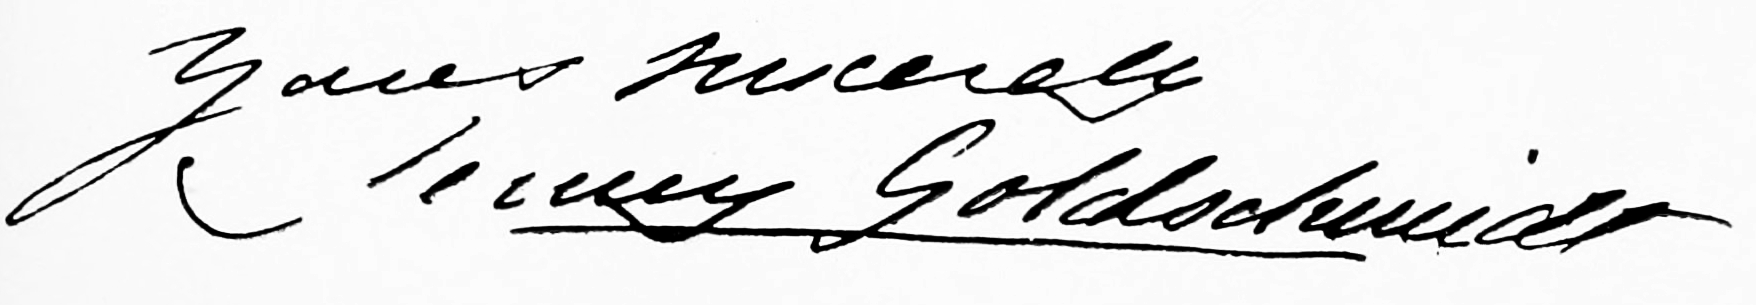 Yours sincerely
Goldschmidt